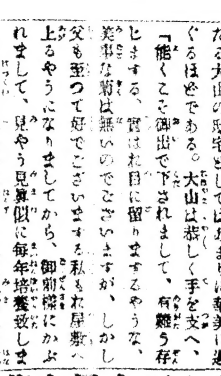 たる大山の邸宅としてはあまに華美に過
ぐるほどである。大山は恭しく手を支へ、
「能くこそ御出で下されまして、有難う存
じまする、實はお目に留りまするやうな、
美事な菊は無いのでございますが、しかし
父も至つて好でございまする私もお屋敷へ
上るやうになりましてから、御前樣にかぶ
れまして、見やう見眞似に毎年培養致しま